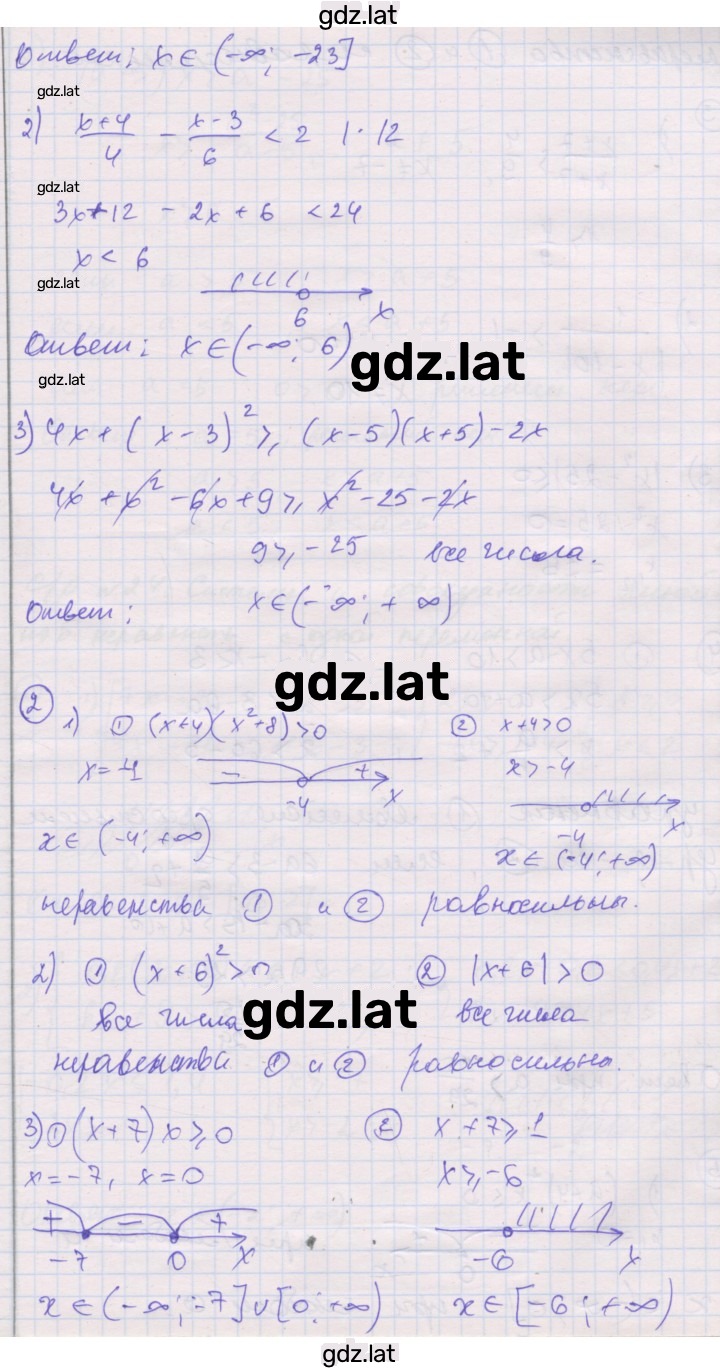 gdz.lat
Ответ: x ∈ (-∞; -23]
gdz.lat
2) (x+4)/4 - (x-3)/6 < 2 | · 12
gdz.lat
3x+12 - 2x + 6 < 24
x < 6
gdz.lat
6 x
Ответ: x ∈ (-∞; 6)
gdz.lat
gdz.lat
3) 4x + (x-3)² ≥ (x-5)(x+5) - 2x
4x + x² - 6x + 9 ≥ x² - 25 - 2x
9 ≥ -25 все числа.
Ответ: x ∈ (-∞; +∞)
gdz.lat
2
1) ① (x+4)(x²+8) > 0 ② x+4 > 0
x = -4 - + x > -4
-4 x
-4 x
x ∈ (-4; +∞) x ∈ (-4; +∞)
неравенства ① и ② равносильны.
2) ① (x+6)² > 0 ② |x+6| > 0
все числа все числа
gdz.lat
неравенства ① и ② равносильны.
3) ① (x+7)x ≥ 0 ② x+7 ≥ 1
x = -7, x = 0 x ≥ -6
+ - +
-7 0 x -6 x
x ∈ (-∞; -7] ∪ [0; +∞) x ∈ [-6; +∞)
gdz.lat